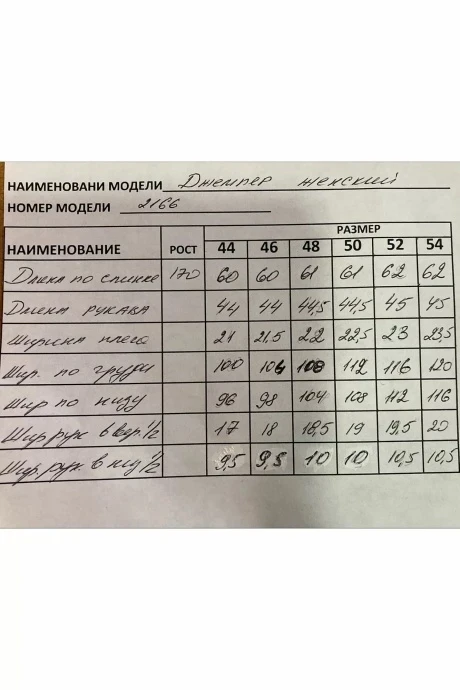 НАИМЕНОВАНИ МОДЕЛИ Джемпер женский
НОМЕР МОДЕЛИ 2166
НАИМЕНОВАНИЕ РОСТ РАЗМЕР
44 46 48 50 52 54
Длина по спинке 170 60 60 61 61 62 62
Длина рукава 44 44 44,5 44,5 45 45
Ширина плеча 21 21,5 22 22,5 23 23,5
Шир. по груди 100 104 108 112 116 120
Шир по низу 96 98 104 108 112 116
Шир рук в вер. 1/2 17 18 18,5 19 19,5 20
Шир. рук. в низ 1/2 9,5 9,5 10 10 10,5 10,5